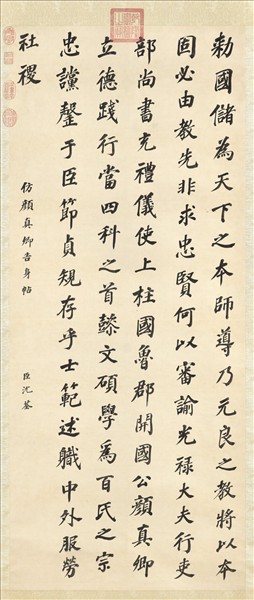 勅國儲為天下之本師導乃元良之教將以本
固必由教先非求忠賢何以審諭光禄大夫行吏
部尚書充禮儀使上柱國魯郡開國公顏真卿
立德踐行當四科之首懿文碩學為百氏之宗
忠讜罄于臣節貞規存乎士範述職中外服勞
社稷
仿顏真卿告身帖
臣沈荃